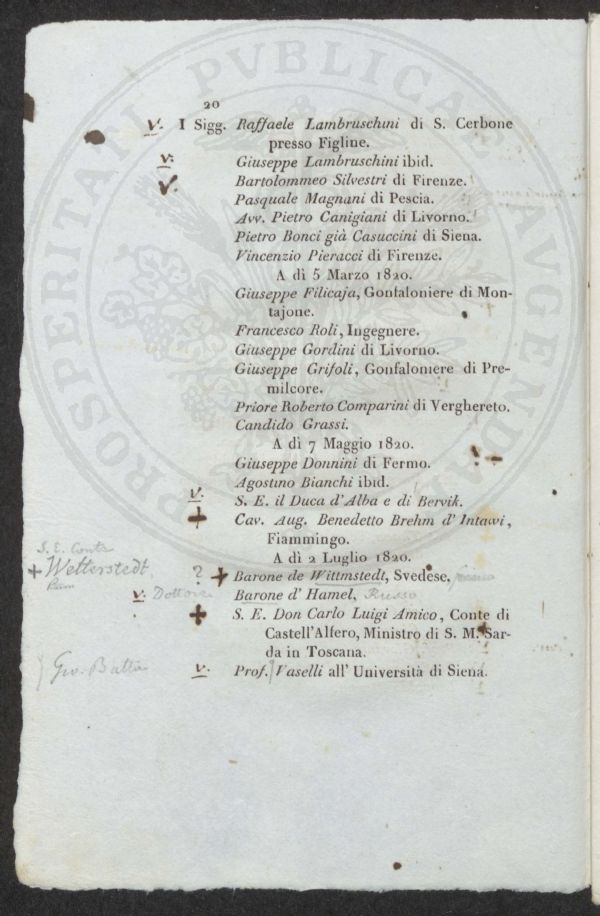 20
v. I Sigg. Raffaele Lambruschini di S. Cerbone
presso Figline.
v. Giuseppe Lambruschini ibid.
v. Bartolommeo Silvestri di Firenze.
Pasquale Magnani di Pescia.
Avv. Pietro Canigiani di Livorno.
Pietro Bonci già Casuccini di Siena.
Vincenzio Pieracci di Firenze.
A dì 5 Marzo 1820.
Giuseppe Filicaja, Gonfaloniere di Mon-
tajone.
Francesco Roli, Ingegnere.
Giuseppe Gordini di Livorno.
Giuseppe Grifoli, Gonfaloniere di Pre-
milcore.
Priore Roberto Comparini di Verghereto.
Candido Grassi.
A dì 7 Maggio 1820.
Giuseppe Donnini di Fermo.
Agostino Bianchi ibid.
v. S. E. il Duca d'Alba e di Bervik.
+ Cav. Aug. Benedetto Brehm d'Intawi,
Fiammingo.
A dì 2 Luglio 1820.
S. E. Conte
+ Wetterstedt
? + Barone de Wittmstedt, Svedese,
v. Dottore Barone d'Hamel, Russo
+ S. E. Don Carlo Luigi Amico, Conte di
Castell'Alfero, Ministro di S. M. Sar-
da in Toscana.
Gio. Batta
v. Prof. Vaselli all'Università di Siena.
PROSPERITATI PVBLICAE AVGENDAE